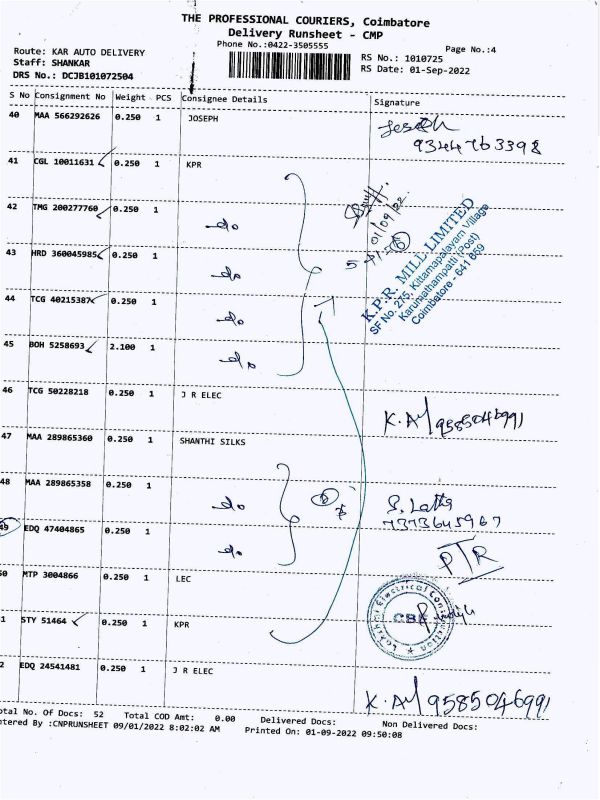 THE PROFESSIONAL COURIERS, Coimbatore
Delivery Runsheet - CMP
Phone No.:0422-3505555
Page No.:4
Route: KAR AUTO DELIVERY
Staff: SHANKAR
DRS No.: DCJB101072504
RS No.: 1010725
RS Date: 01-Sep-2022
S No Consignment No Weight PCS Consignee Details Signature
40 MAA 566292626 0.250 1 JOSEPH Joseph
9344763398
41 CGL 10011631 0.250 1 KPR
42 TMG 200277760 0.250 1 do
01/09/22
43 HRD 360045985 0.250 1 do
K.P.R. MILL LIMITED
SF No. 275, Kittampalayam Village
Karumathampatti (Post)
Coimbatore - 641 659
44 TCG 40215387 0.250 1 do
45 BOH 5258693 2.100 1 do
46 TCG 50228218 0.250 1 J R ELEC
9585046991
47 MAA 289865360 0.250 1 SHANTHI SILKS
48 MAA 289865358 0.250 1 do S. Latha
7373645967
49 EDQ 47404865 0.250 1 do
PTR
50 MTP 3004866 0.250 1 LEC
1 STY 51464 0.250 1 KPR
CBE
2 EDQ 24541481 0.250 1 J R ELEC
9585046991
otal No. Of Docs: 52 Total COD Amt: 0.00 Delivered Docs: Non Delivered Docs:
ntered By :CNPRUNSHEET 09/01/2022 8:02:02 AM Printed On: 01-09-2022 09:50:08